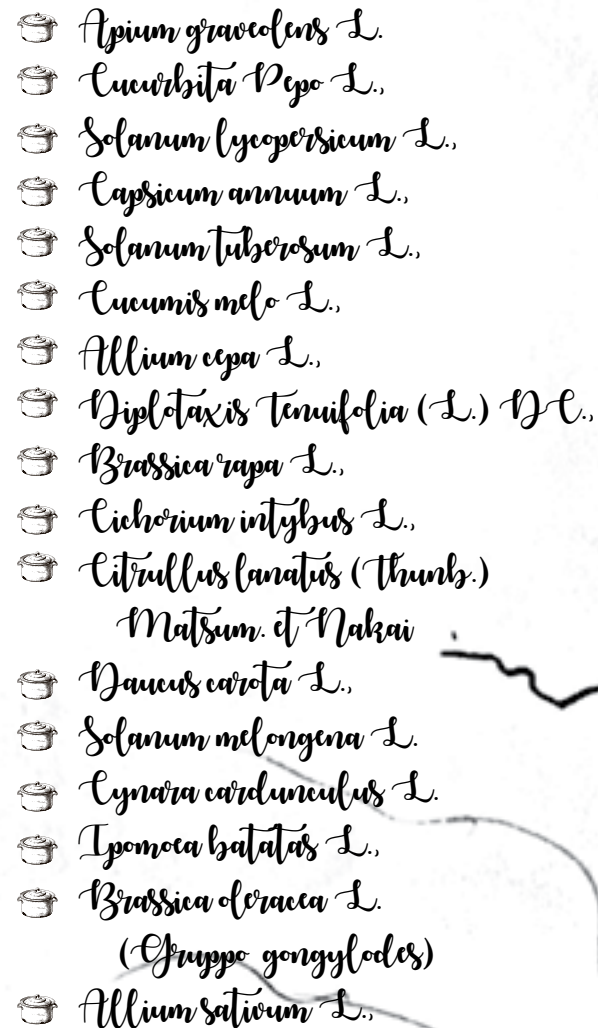 Apium graveolens L.
Cucurbita Pepo L.,
Solanum lycopersicum L.,
Capsicum annuum L.,
Solanum tuberosum L.,
Cucumis melo L.,
Allium cepa L.,
Diplotaxis tenuifolia (L.) DC.,
Brassica rapa L.,
Cichorium intybus L.,
Citrullus lanatus (Thunb.)
Matsum. et Nakai
Daucus carota L.,
Solanum melongena L.
Cynara cardunculus L.
Ipomoea batatas L.,
Brassica oleracea L.
(Gruppo gongylodes)
Allium sativum L.,